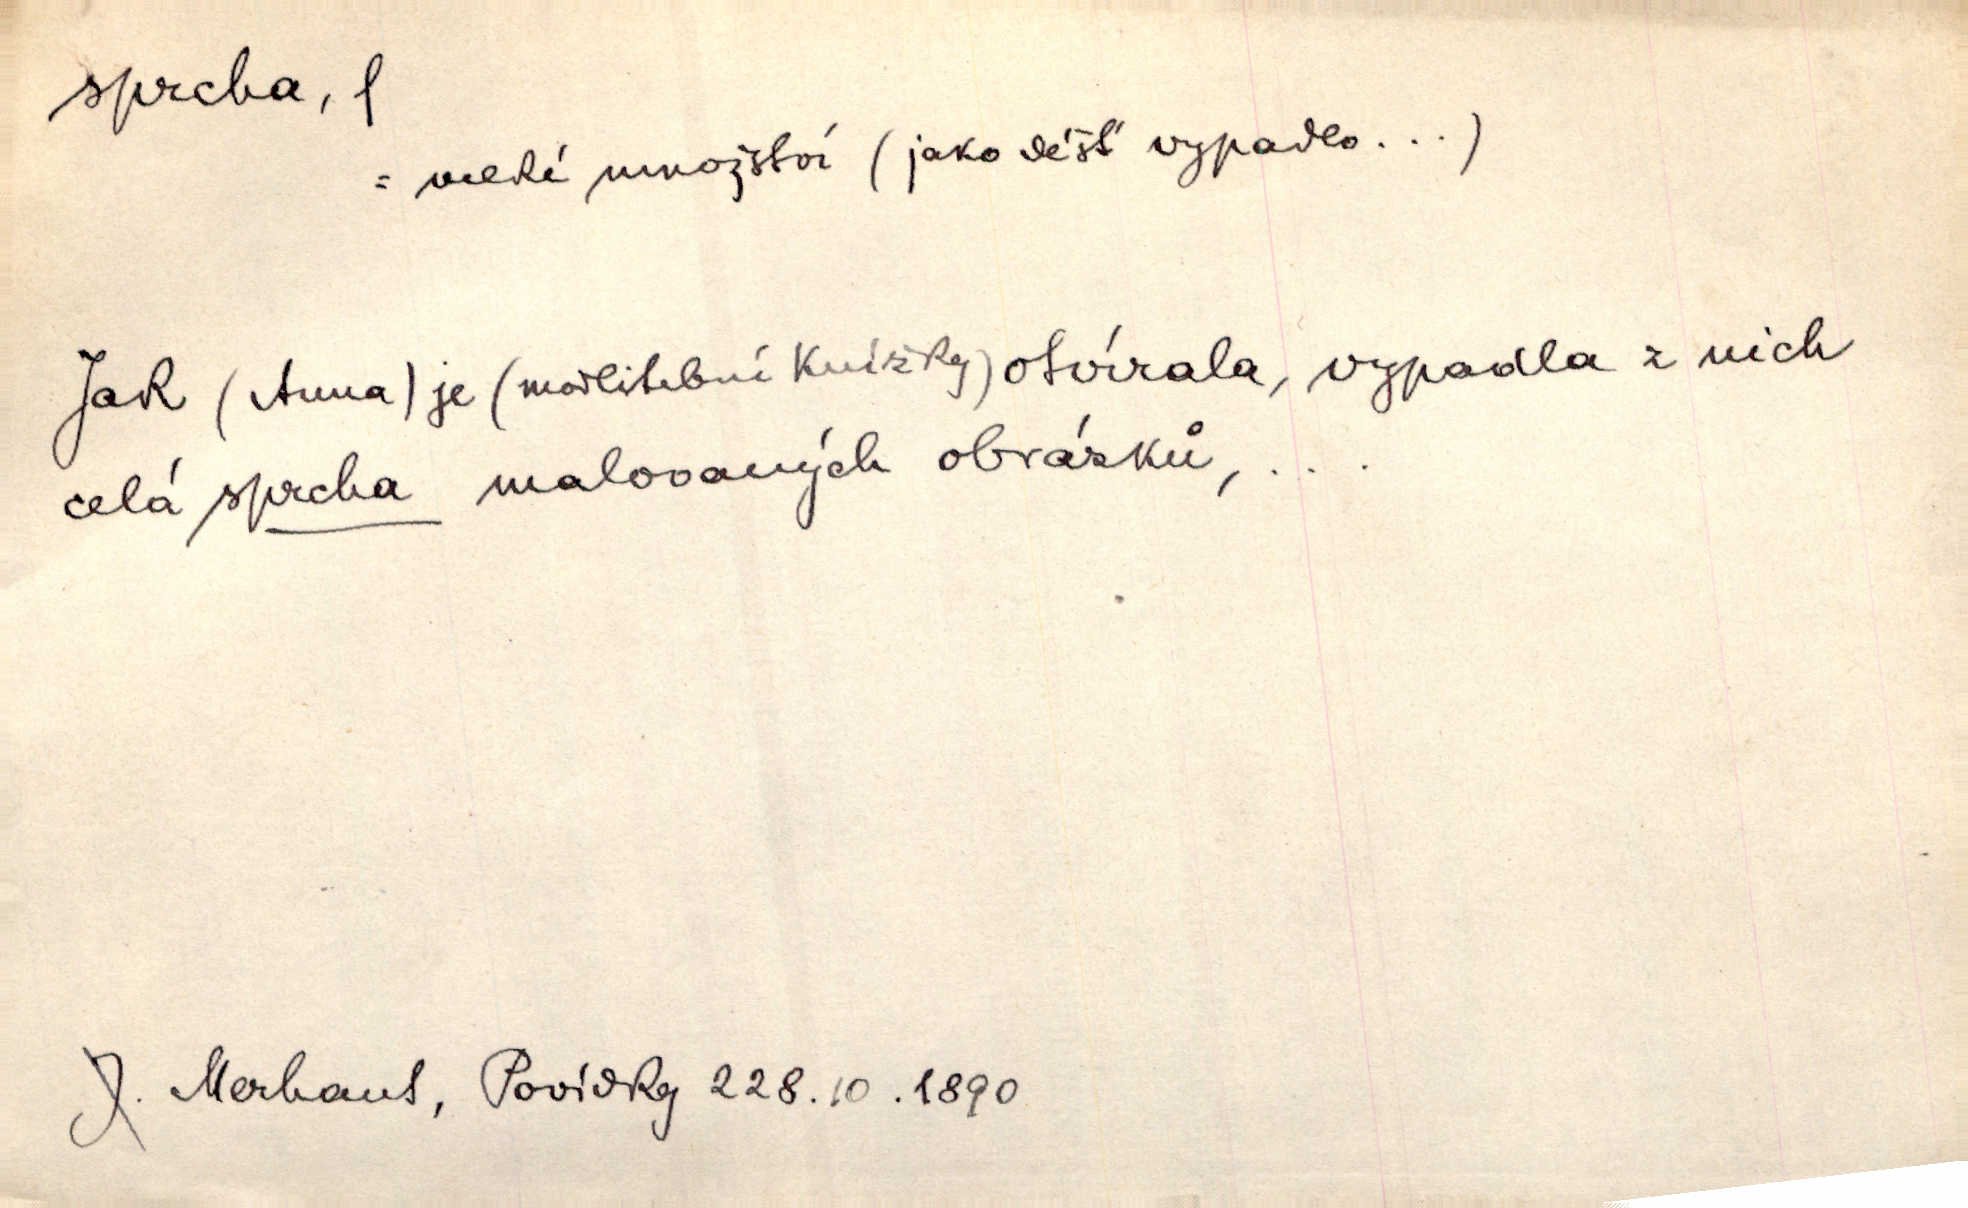 sprcha, f
= velké množství (jako déšť vypadlo...)
Jak (Anna) je (modlitební knížky) otvírala, vypadla z nich
celá sprcha malovaných obrázků, ...
J. Merhaut, Povídky 228.10.1890